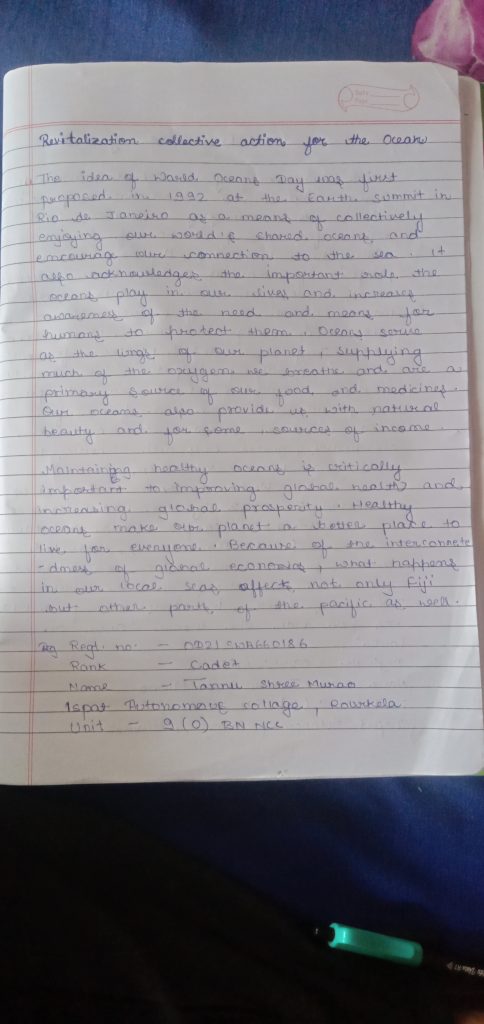 Revitalization collective action for the Ocean
The idea of World Oceans Day was first
proposed in 1992 at the Earth summit in
Rio de Janeiro as a means of collectively
enjoying our world's shared oceans and
encourage our connection to the sea. It
also acknowledges the important role, the
oceans play in our lives and increase
awareness of the need and means for
humans to protect them. Oceans serve
as the lungs of our planet, supplying
much of the oxygen we breathe and are a
primary source of our food and medicines.
Our oceans also provide us with natural
beauty and for some, sources of income.
Maintaining healthy oceans is critically
important to improving global health and
increasing global prosperity. Healthy
oceans make our planet a better place to
live for everyone. Because of the interconnete
-dness of global economies, what happens
in our local seas affects not only Fiji
but other parts of the pacific as well.
Regl. no. - OD21SWA660186
Rank - Cadet
Name - Tannu Shree Munao
Ispat Autonomous collage, Rourkela
Unit - 9(O) BN NCC